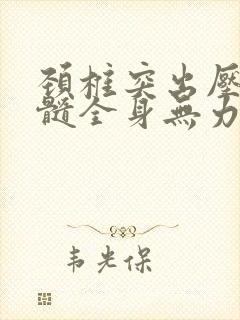 頚柱突出壓
髓全身無力
韦光保